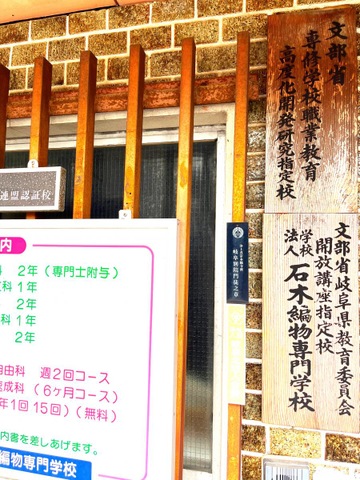 文部省
専修学校職業教育
高度化開発研究指定校
文部省岐阜県教育委員会
開放講座指定校
学校法人 石木編物専門学校
連盟認証校
内
2年（専門士附与）
科1年
2年
科1年
2年
自由科 週2回コース
成科（6ヶ月コース）
年1回15回）（無料）
内書を差しあげます。
編物専門学校